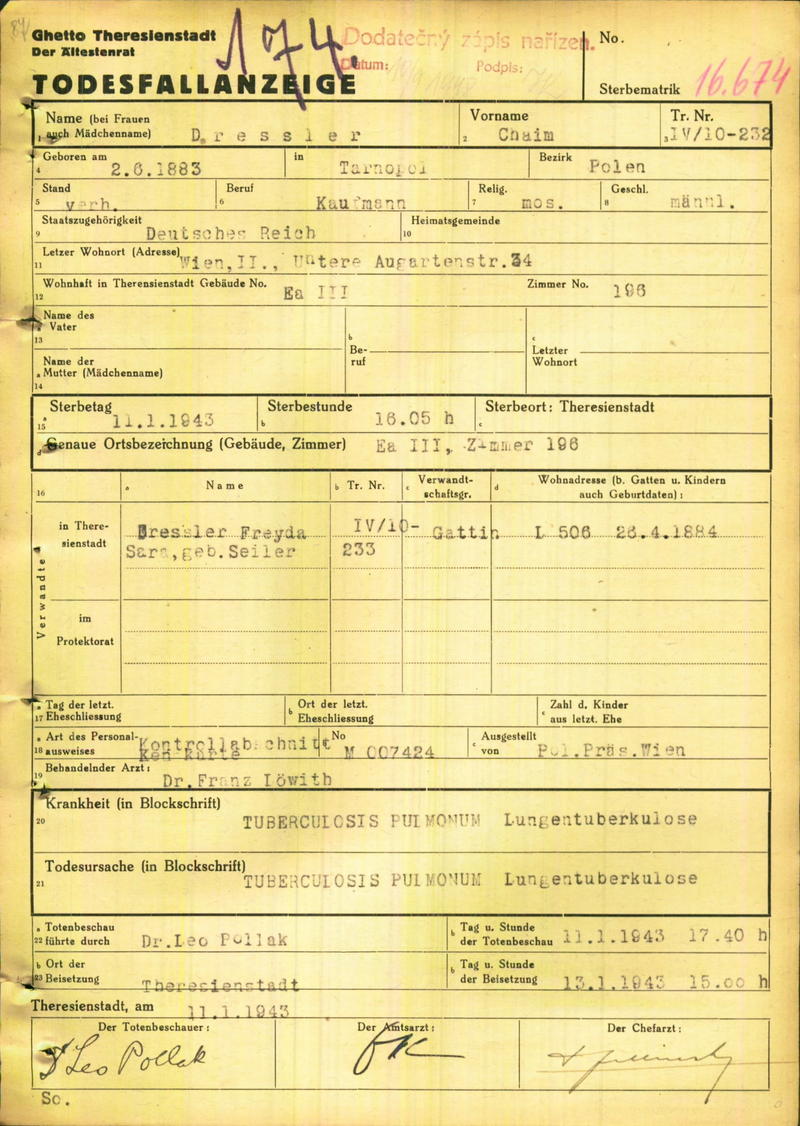 87
Ghetto Theresienstadt
Der Ältestenrat
174
Dodatečný zápis nařízen.
Datum:
Podpis:
No.
TODESFALLANZEIGE
Sterbematrik 16.674
Name (bei Frauen auch Mädchenname) Dressler
Vorname Chaim
Tr. Nr. IV/10-232
Geboren am 2.6.1883 in Tarnopol Bezirk Polen
Stand verh. Beruf Kaufmann Relig. mos. Geschl. männl.
Staatszugehörigkeit Deutsches Reich Heimatsgemeinde
Letzer Wohnort (Adresse) Wien,II., Untere Augartenstr.34
Wohnhaft in Therensienstadt Gebäude No. Ea III Zimmer No. 196
13 Name des Vater
b Beruf
c Letzter Wohnort
14 Name der Mutter (Mädchenname)
15 Sterbetag 11.1.1943 b Sterbestunde 16.05 h c Sterbeort: Theresienstadt
d Genaue Ortsbezeichnung (Gebäude, Zimmer) Ea III, Zimmer 196
16 a Name b Tr. Nr. c Verwandtschaftsgr. d Wohnadresse (b. Gatten u. Kindern auch Geburtdaten):
Verwandte
in Theresienstadt
Dressler Freyda IV/10- Gattin L 506 26.4.1884
Sara,geb.Seiler 233
im Protektorat
17 a Tag der letzt. Eheschliessung b Ort der letzt. Eheschliessung c Zahl d. Kinder aus letzt. Ehe
18 a Art des Personalausweises Kontrollabschnitt No M 007424 c Ausgestellt von Pol.Präs.Wien
19 Behandelnder Arzt: Dr.Franz Löwith
Krankheit (in Blockschrift)
20 TUBERCULOSIS PULMONUM Lungentuberkulose
Todesursache (in Blockschrift)
21 TUBERCULOSIS PULMONUM Lungentuberkulose
22 a Totenbeschau führte durch Dr.Leo Pollak b Tag u. Stunde der Totenbeschau 11.1.1943 17.40 h
23 b Ort der Beisetzung Theresienstadt b Tag u. Stunde der Beisetzung 13.1.1943 15.00 h
Theresienstadt, am 11.1.1943
Der Totenbeschauer: Der Amtsarzt: Der Chefarzt:
Dr Leo Pollak
Sc.